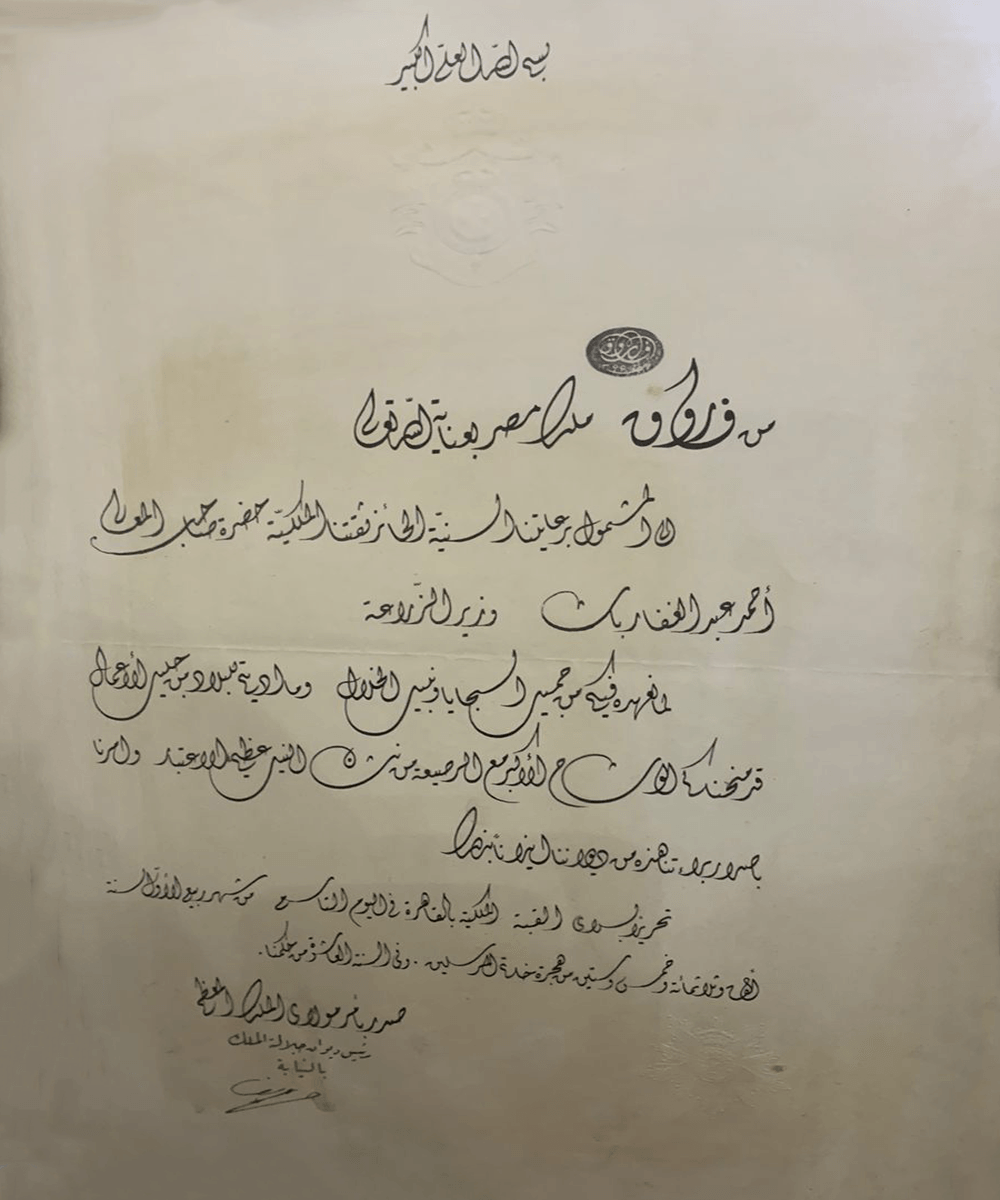 بسم الله العلي الكبير
فاروق
من فاروق ملك مصر بعناية الله تعالى
إلى المشمول برعايتنا السنيّة الحائز ثقتنا الملكيّة حضرة صاحب المعالى
أحمد عبد الغفار باشا وزير الزّراعة
لما نعهده فيكم من جميل السجايا ونبيل الخلال وما أديتم للبلاد من جليل الأعمال
قد منحناكم الوشاح الأكبر مع الرصيعة من نشان النيل عظيم الاعتبار وأمرنا
باصدار براءتنا هذه من ديواننا ايذانا بذلك
تحريرا بسراى القبة الملكية بالقاهرة فى اليوم التاسع من شهر ربيع الأوّل سنة
ألف وثلاثمائة وخمس وستين من هجرة خاتم المرسلين. وفى السنة العاشرة من حكمنا.
صدر بأمر مولاى الملك المعظم
رئيس ديوان جلالة الملك
بالنيابة